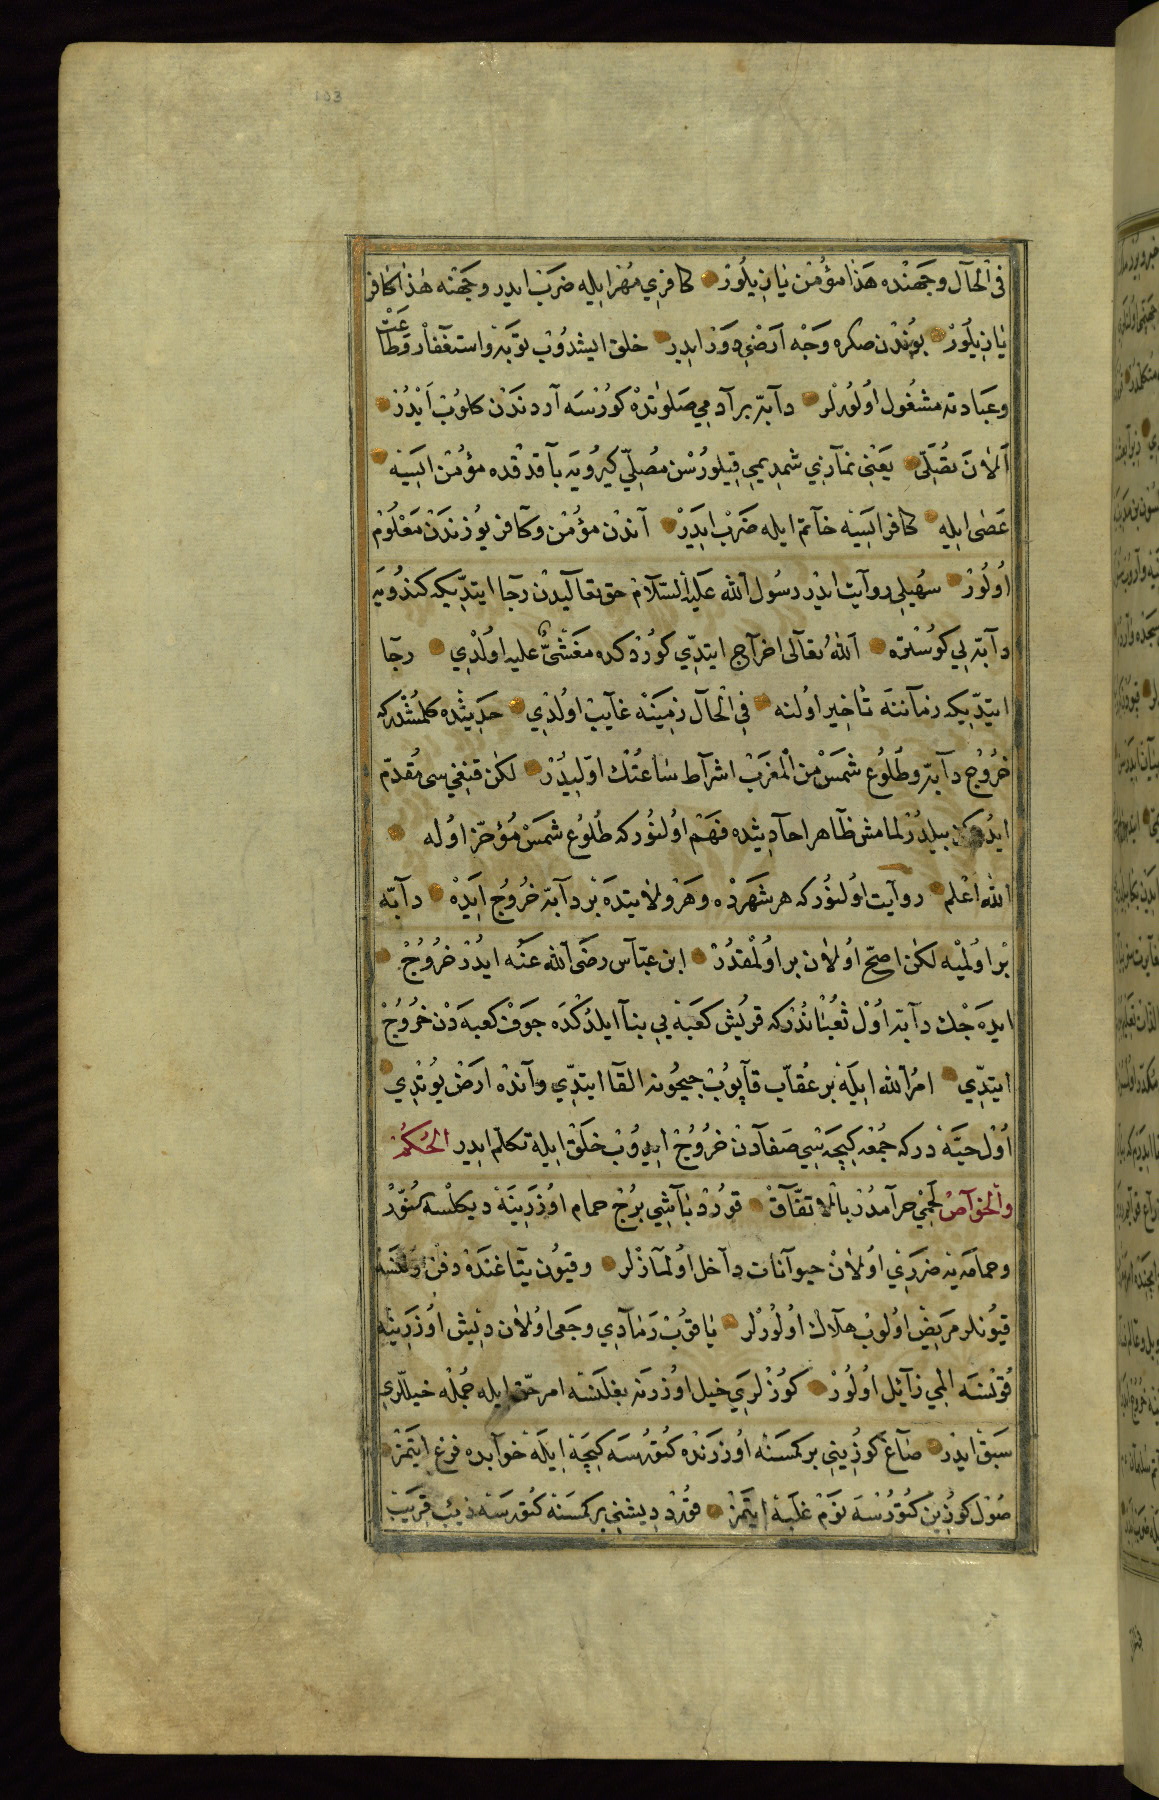 103
فى الحآل وجهنده هذا مؤمن يازيلور كافري مهر ايله ضرب ايدر وجهنه هذا كافر
يازيلور بوندن صكره وجه ارضى دور ايدر خلق ايشدوب توبه واستغفار وطاعت
وعبادته مشغول اولورلر دآبه بر آدمي صلوتده كورسه آردندن كلوب ايدر
الان تصلى يعنى نمازى شمديمى قيلورسن مصلى كيرويه باقدقده مؤمن ايسه
عصى ايله كافر ايسه خاتم ايله ضرب ايدر آندن مؤمن وكافر يوزندن معلوم
اولور سهيلى روآيت ايدر رسول الله عليه السلام حق تعاليدن رجا ايتديكه كندويه
دآبه يى كوستره الله تعالى اخراج ايتدى كوردكده مغشى عليه اولدي رجا
ايتديكه زماننه تأخير اولنه فى الحال زمينه غايب اولدي حديثده كلمشدركه
خروج دآبه وطلوع شمس من المغرب اشراط ساعتك اوليدر لكن قنغيسى مقدم
بيلدرلمامش ظاهر احاديثده فهم اولنوركه طلوع شمس مؤخر اوله
الله اعلم روآيت اولنوركه هر شهرده وهر ولايتده بر دآبه خروج ايده دآبه
بر اولميه لكن اصح اولان بر اولمقدر ابن عباس رضى الله عنه ايدر خروج
ايده جك دآبه اول ثعباندركه قريش كعبه يى بنا ايلدكده جوف كعبه دن خروج
ايتدي امر الله ايله بر عقاب قاپوب جيحونه القا ايتدي وآنده ارض يوتدي
اول حيه دركه جمعه كيجه سى صفادن خروج ايدوب خلق ايله تكلم ايدر الحكم
والخوآص لحمى حرامدر بالاتفاق قورد باشى برج حمام اوزرينه ديكلسه سنور
وحمامه يه ضررى اولان حيوانات داخل اولمازلر وقيون يتاغنده دفن اولنسه
قيونلر مريض اولوب هلاك اولورلر ياقوب رمادي وجعى اولان ديش اوزرينه
قونسه المى زآئل اولور كوزلرى خيل اوزرنه بغلنسه امر حق ايله جمله خيللرى
سبق ايدر صاغ كوزينى بر كمسنه اوزرنده كتورسه كيجه ايله خوابده فزع ايتمز
صول كوزين كتورسه نوم غلبه ايتمز قورد ديشنى بر كمسنه كتورسه ذئب قريب